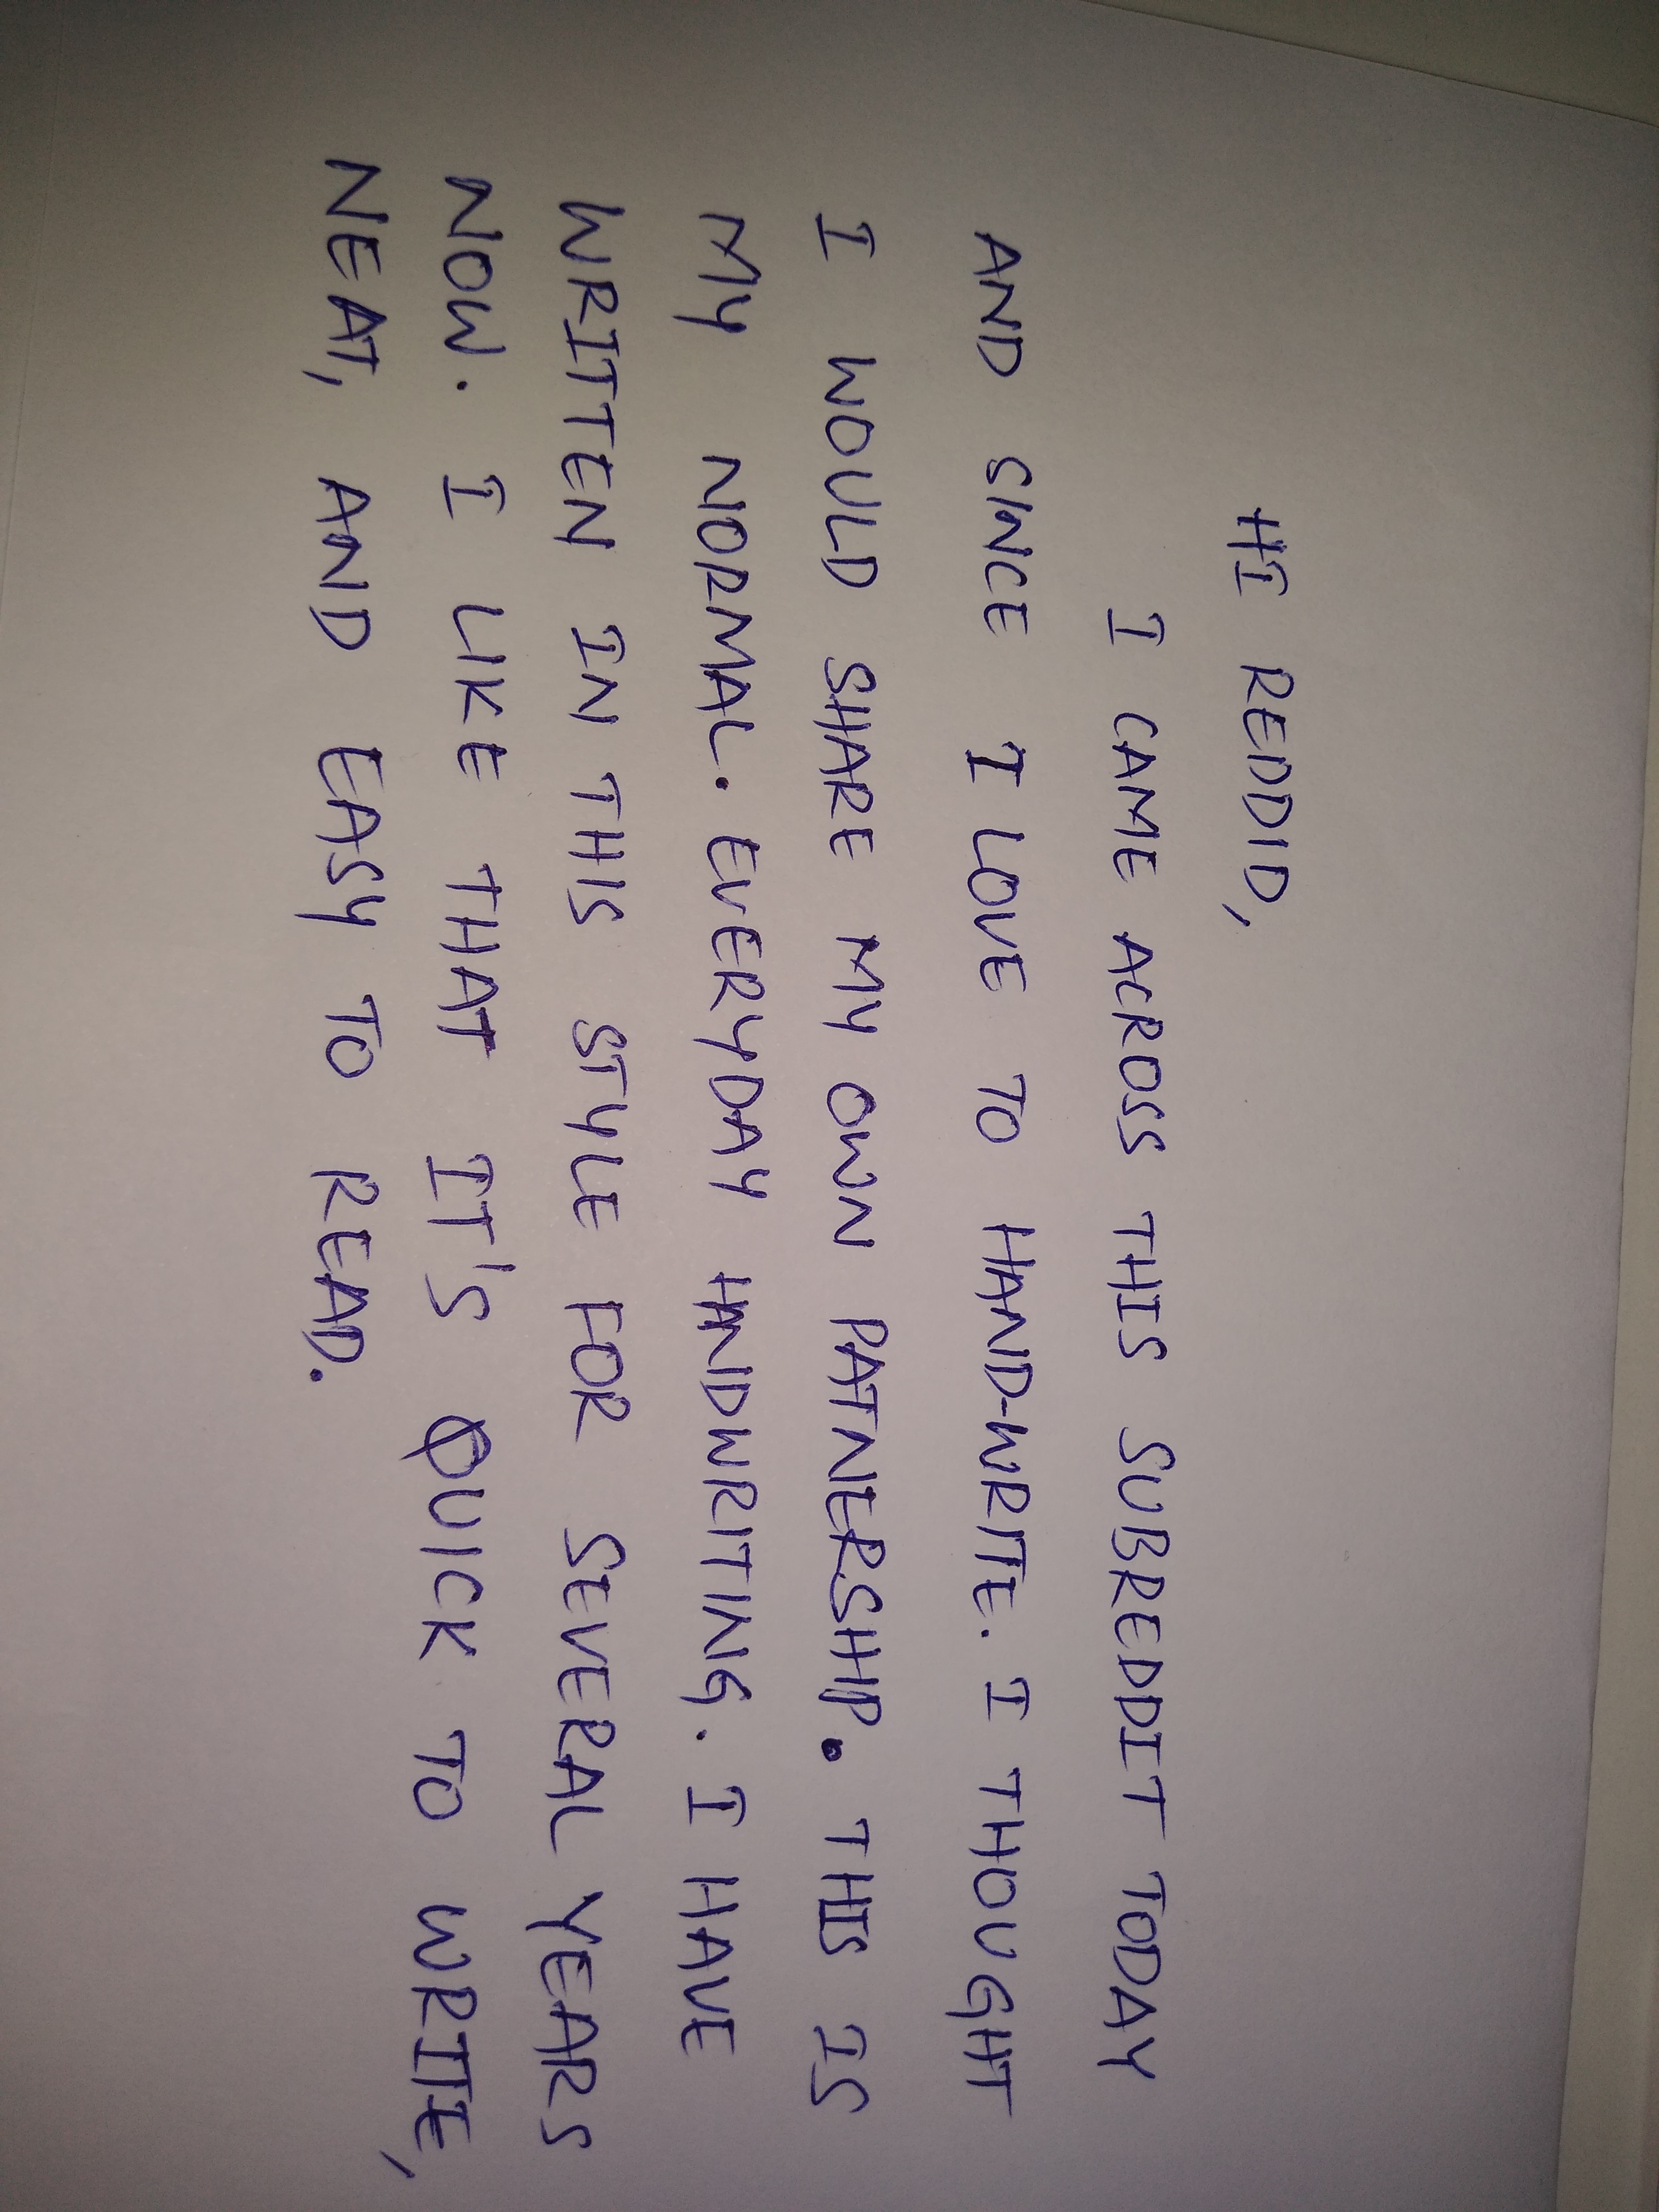 HI REDDID,
I CAME ACROSS THIS SUBREDDIT TODAY
AND SINCE I LOVE TO HAND-WRITE. I THOUGHT
I WOULD SHARE MY OWN PATNERSHIP. THIS IS
MY NORMAL. EVERYDAY HANDWRITING. I HAVE
WRITTEN IN THIS STYLE FOR SEVERAL YEARS
NOW. I LIKE THAT IT'S QUICK TO WRITE,
NEAT, AND EASY TO READ.